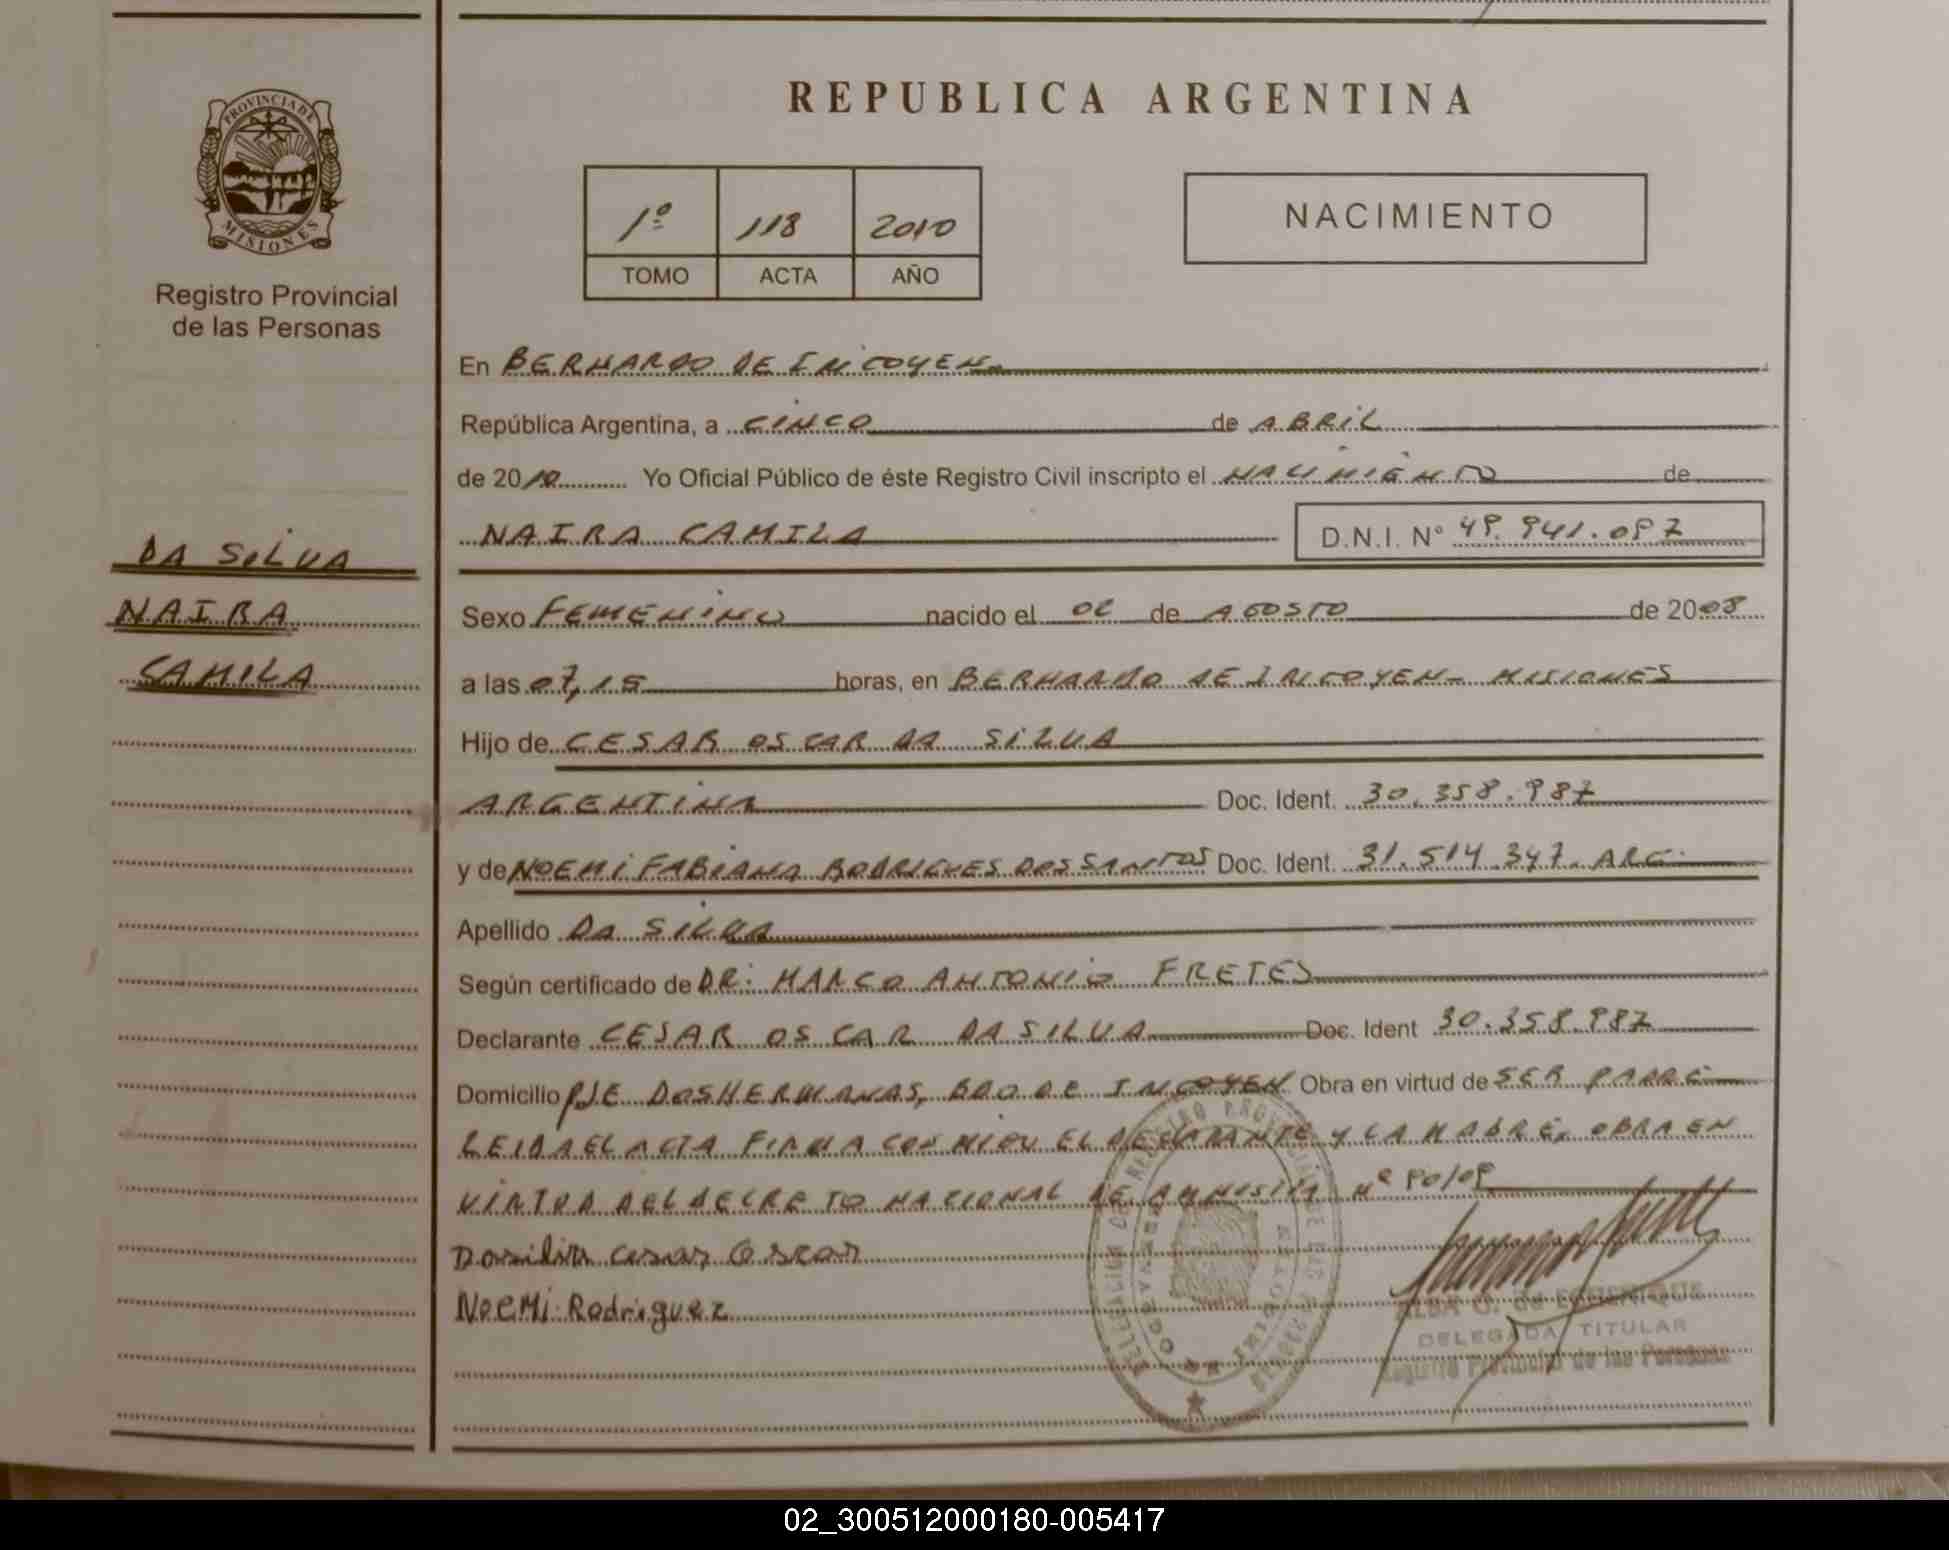 REPUBLICA ARGENTINA
PROVINCIA DE
MISIONES
Registro Provincial
de las Personas
1º 118 2010
TOMO ACTA AÑO
NACIMIENTO
En BERNARDO DE IRIGOYEN
República Argentina, a CINCO de ABRIL
de 2010 Yo Oficial Público de éste Registro Civil inscripto el NACIMIENTO de
NAIRA CAMILA D.N.I. Nº 49.941.097
DA SILVA
NAIRA
CAMILA
Sexo FEMENINO nacido el 02 de AGOSTO de 2008
a las 07,15 horas, en BERNARDO DE IRIGOYEN - MISIONES
Hijo de CESAR OSCAR DA SILVA
ARGENTINA Doc. Ident. 30.358.987
y de NOEMI FABIANA RODRIGUES DOS SANTOS Doc. Ident. 31.514.347. ARG.
Apellido DA SILVA
Según certificado de DR: MARCO ANTONIO FRETES
Declarante CESAR OSCAR DA SILVA Doc. Ident 30.358.987
Domicilio PJE DOS HERMANAS, BDO DE IRIGOYEN Obra en virtud de SER PADRE
LEIDA EL ACTA FIRMA CONMIGO EL DECLARANTE Y LA MADRE. OBRA EN
VIRTUD DEL DECRETO NACIONAL DE AMNISTIA Nº 90/09
Dasilva Cesar Oscar
NOEMI Rodriguez
ALBA G. de ECHENIQUE
DELEGADA TITULAR
Registro Provincial de las Personas
02_300512000180-005417